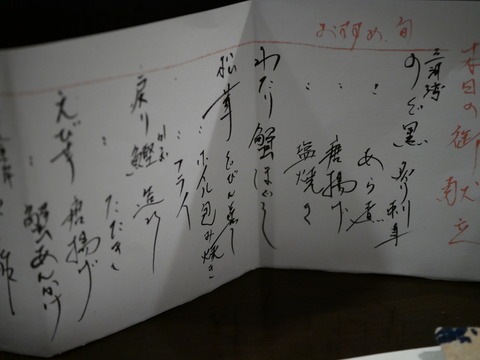 本日の御献立
おすすめ 旬
三河湾
のど黒 炙り刺身
〃 あら煮
〃 唐揚げ
〃 塩焼き
わたり蟹ほぐし
松茸 どびん蒸し
〃 ホイル包み焼き
〃 フライ
戻り鰹 造り
〃 たたき
えび芋 唐揚げ
〃 蟹あんかけ